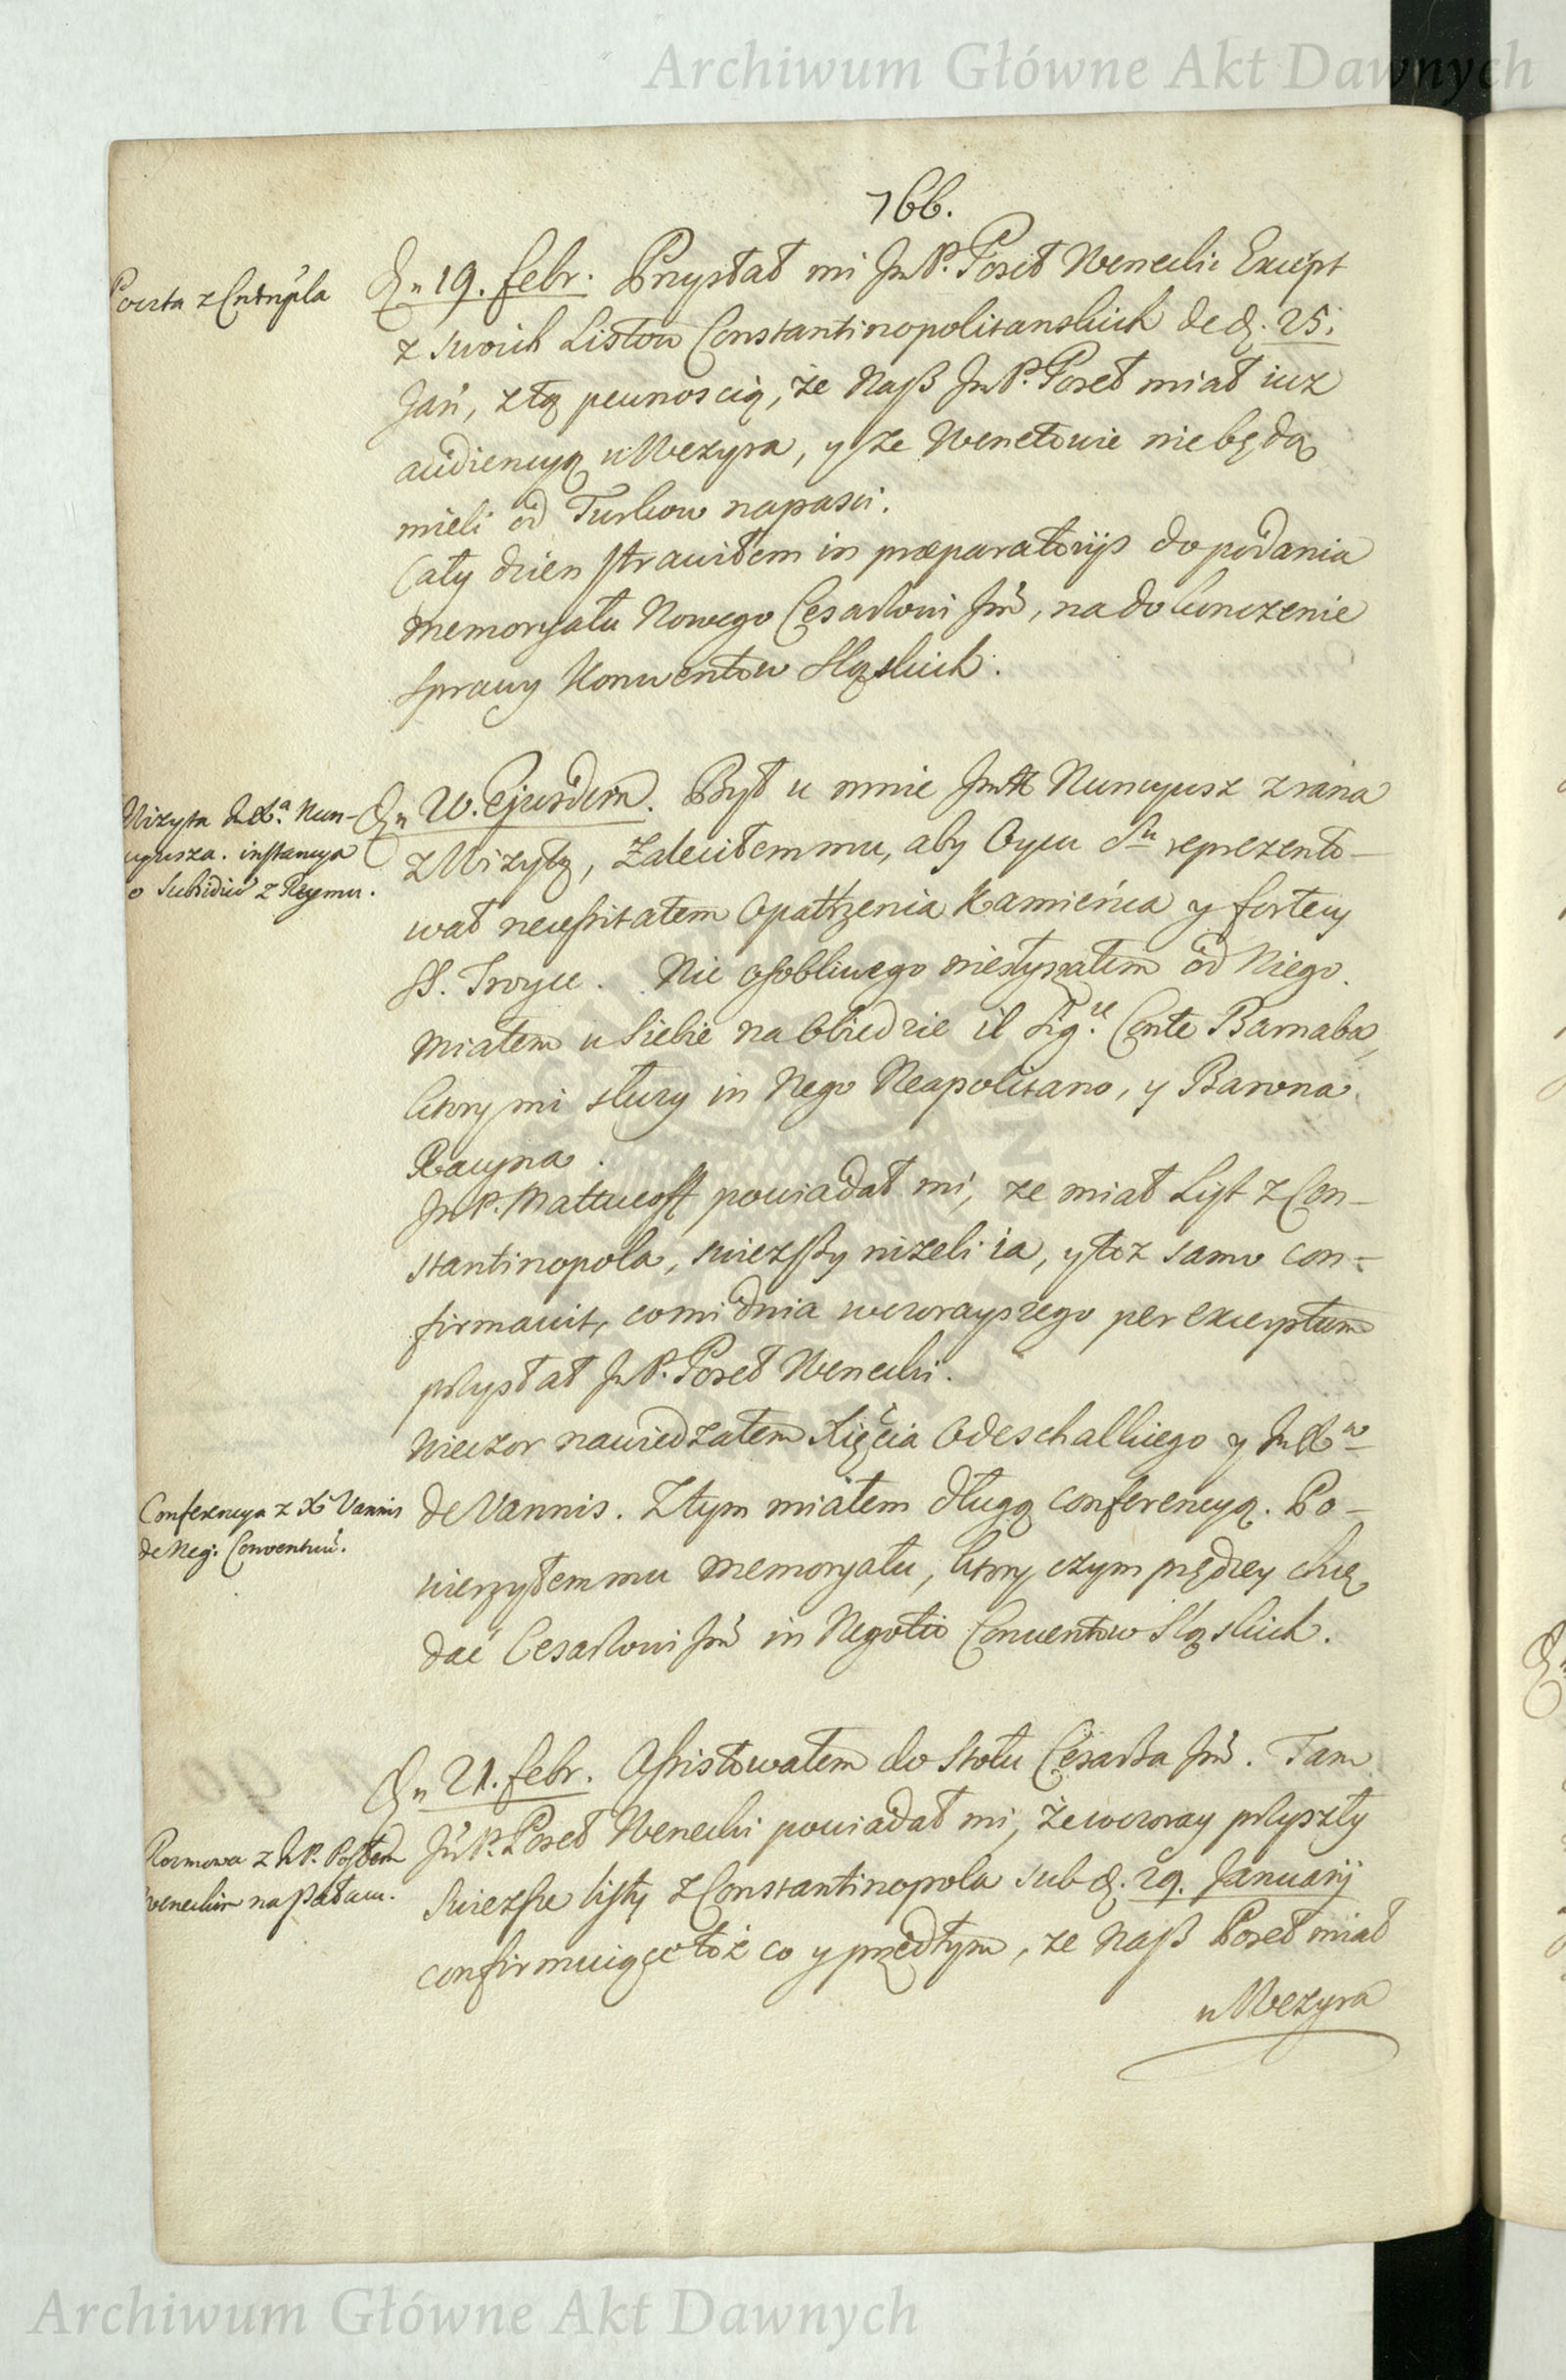 Archiwum Główne Akt Dawnych
766.
Poczta z Cntnpla
Dn 19. febr. Przysłał mi Jm P. Poseł Wenecki Except
z swoich Listow Constantinopolitanskich de d. 25.
Jan̄, z tą pewnoscią, że Naß Jm P. Poseł miał iuz
audiencyą u Wezyra, y że Wenetowie niebędą
mieli od Turkow napasci.
Cały dzien strawiłem in præparatorijs do podania
memoryału Nowego Cesarzowi Jm̄, na dokonczenie
sprawy Konwentow Sląskich.
Wizyta JmXa. Nun-
cyusza. instancya
o Subsidiū z Rzymu.
Dn 20. Ejusdem. Był u mnie JmX Nuncyusz z rana
z Wizytą, Zaleciłem mu, aby Oycu Su reprezento-
wał necessitatem Opatrzenia Kamieńca y fortecy
SS. Troyce. Nic osobliwego niesłyszałem od Niego.
Miałem u Siebie na Obiedzie il Sigre. Conte Barnaba,
ktory mi słuzy in Nego Neapolitano, y Barona
Racyna.
Jm P. Mattueoff powiadał mi, ze miał List z Con-
stantinopola, swiezszy nizeli ia, y toz samo con-
firmavit, co mi dnia wczorayszego per excerptum
przysłał Jm P. Poseł Wenecki.
Wieczor nawiedzałem Xięcia Odeschalkiego y JmXa
Conferencya z X Vannis
de Neg: Conventuū.
de Vannis. Z tym miałem długą conferencyą. Po-
wierzyłem mu memoryału, ktory czym prędzey chcę
dać Cesarzowi Jm̄ in Negotio Conventow Sląskich.
Dn 21. febr. Assistowałem do Stołu Cesarza Jm̄. Tam
Rozmowa z JmP. Posłem
weneckim na Pałacu.
Jm̄ P. Poseł Wenecki powiadał mi, że wczoray przyszły
swiezsze listy z Constantinopola sub d. 29. Januarij
confirmuiące toż co y przedtym, ze Naß Poseł miał
u Wezyra
Archiwum Główne Akt Dawnych